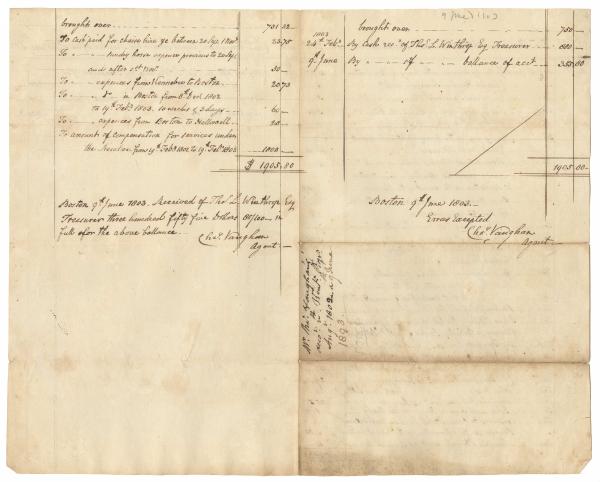 brought over 701 02
To Cash paid for chaise hire &c between 20 Sep. & Nov. 23.75
To sundry horse expences previous to 20 Sep.
and after 1st Nov. 30 —
To expences from Kennebec to Boston 20.73
To Do in Boston from 8th Dec. 1802
to 19th Feb. 1803. 10 weeks & 3 days 60 —
To expences from Boston to Hallowell 20 —
To amount of compensation for services under
the Resolve from 19th Feby 1802 to 19th Feby 1803 1000 —
$ 1905.80
Boston 9th June 1803. Received of Thos. L. Winthrop Esq
Treasurer three hundred fifty five Dollars 80/100 in
full for the above ballance.
Chas. Vaughan
Agent
9 June 1803
brought over 750 —
1803
24th Feby. By Cash rec'd of Thos. L. Winthrop Esq. Treasurer 800
9th June By of ballance of acct. 355.80
1905 80
Boston 9th June 1803.
Errors Excepted
Chas. Vaughan
Agent
Mr. Chs. Vaughan's
Acco.
Augt. 1802 a 9 June
1803